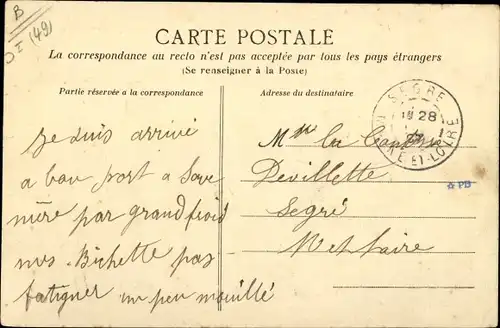 B
D I (49)
CARTE POSTALE
La correspondance au recto n'est pas acceptée par tous les pays étrangers
(Se renseigner à la Poste)
Partie réservée à la correspondance
Adresse du destinataire
SEGRÉ
28
MAINE-ET-LOIRE
Je suis arrivé
a bon port a
mère par grand froid
mes Bichette pas
fatiguer un peu mouillé
la
Devillette
Segré
Met Loire
PB